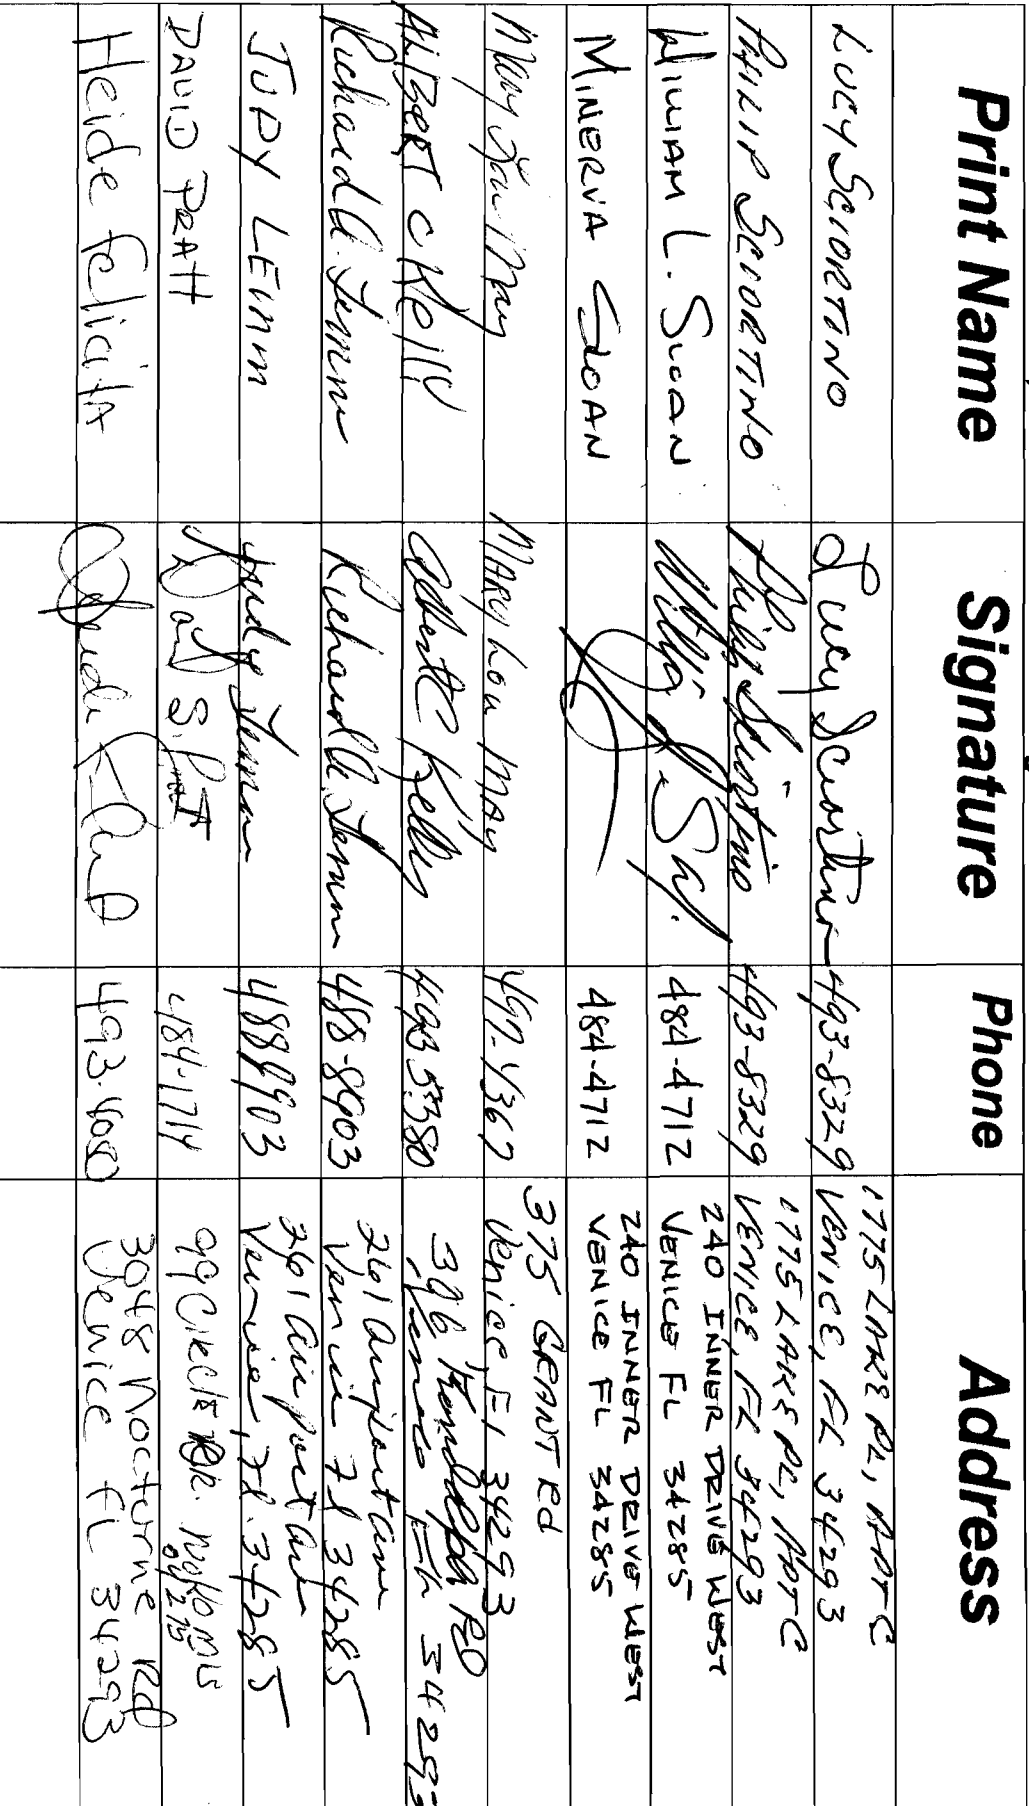 Print Name Signature Phone Address
LUCY SCIORTINO Lucy Sciortino 493-8329 1775 LAKE PL, APT-C
VENICE, FL 34293
PHILIP SCIORTINO Philip Sciortino 493-8329 1775 LAKE PL, APT-C
VENICE, FL 34293
WILLIAM L. SLOAN 484-4712 240 INNER DRIVE WEST
VENICE FL 34285
MINERVA SLOAN 484-4712 240 INNER DRIVE WEST
VENICE FL 34285
Mary Lou May MARY LOU MAY 497-1367 375 GRANT Rd
Venice Fl 34293
AlBERT C Kelly Albert C Kelly 493 5380 396 RD
Venice Fl 3429
Richard A. Richard A. 488-8903 261 Airport Ave
Venice Fl 34285
JUDY Judy 4888903 261 Airport Ave
Venice, Fl. 34285
DAVID PRATT David S. Pratt 484-1714 99 CIRCLE DR. Nokomis
34275
Heide Felicita 493-4080 3048 Nocturne Rd
Venice FL 34293